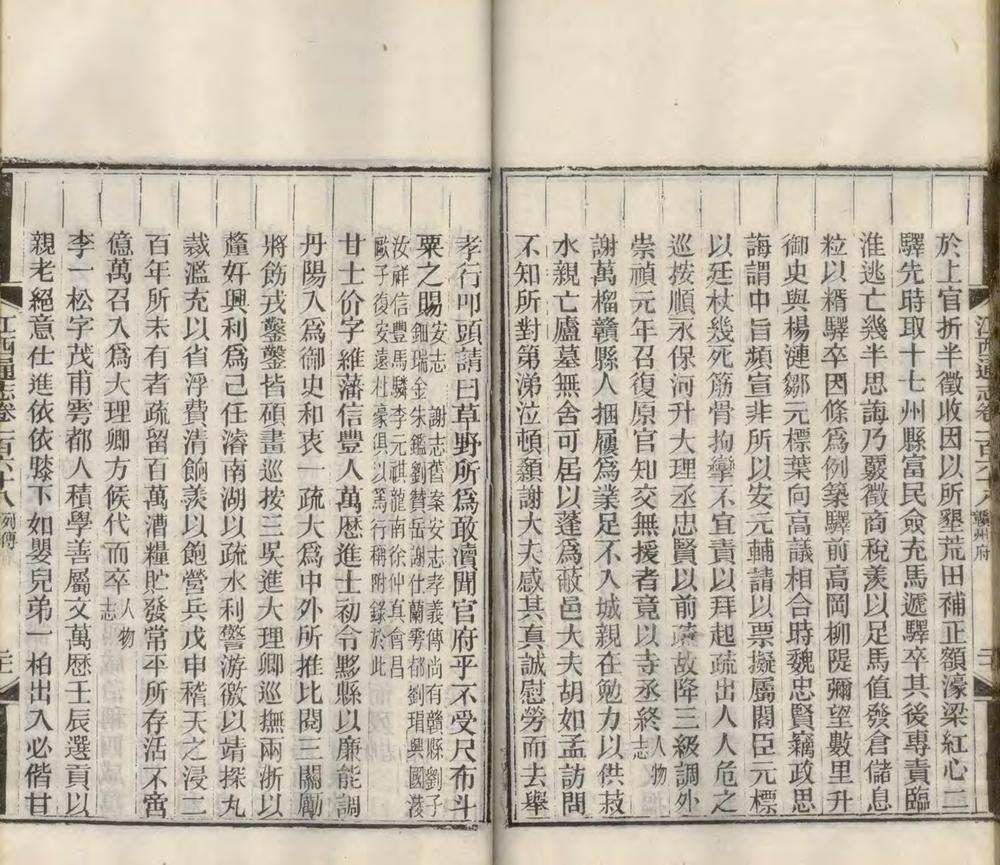 於上官折半徵收因以所墾荒田補正額濠梁紅心二
驛先時取十七州縣富民僉充馬遞驛卒其後專責臨
淮逃亡幾半思誨乃覈徵商稅羨以足馬值發倉儲息
粒以糈驛卒因條爲例築驛前高岡柳隄彌望數里升
御史與楊漣鄒元標葉向高議相合時魏忠賢竊政思
誨謂中旨頻宣非所以安元輔請以票擬屬閣臣元標
以廷杖幾死筋骨拘攣不宜責以拜起疏出人人危之
巡按順永保河升大理丞忠賢以前疏故降三級調外
崇禎元年召復原官知交無援者竟以寺丞終人物志
謝萬榴贛縣人捆屨爲業足不入城親在勉力以供菽
水親亡廬墓無舍可居以蓬爲敝邑大夫胡如孟訪問
不知所對第涕泣頓顙謝大夫感其真誠慰勞而去舉
江西通志卷一百六十八 贛州府
孝行叩頭請曰草野所爲敢瀆聞官府乎不受尺布斗
粟之賜安志 謝志舊案安志孝義傳尚有贛縣劉子
鈿瑞金朱鑑劉贊岳謝仕蘭雩都劉瑁興國濲
汝祥信豐馬驥李元祺龍南徐仲真會昌
歐子復安遠杜豪俱以篤行稱附錄於此
甘士价字維藩信豐人萬歷進士初令黟縣以廉能調
丹陽入爲御史和衷一疏大爲中外所推比閱三關勵
將飭戎鑿鑿皆碩畫巡按三吳進大理卿巡撫兩浙以
釐奸興利爲己任濬南湖以疏水利警游徼以靖探丸
裁濫充以省浮費清餉羨以飽營兵戊申稽天之浸二
百年所未有者疏留百萬漕糧貯發常平所存活不啻
億萬召入爲大理卿方候代而卒人物志
李一松字茂甫雩都人積學善屬文萬歷壬辰選貢以
親老絕意仕進依依膝下如嬰兒弟一柏出入必偕甘
江西通志卷一百六十八 列傳